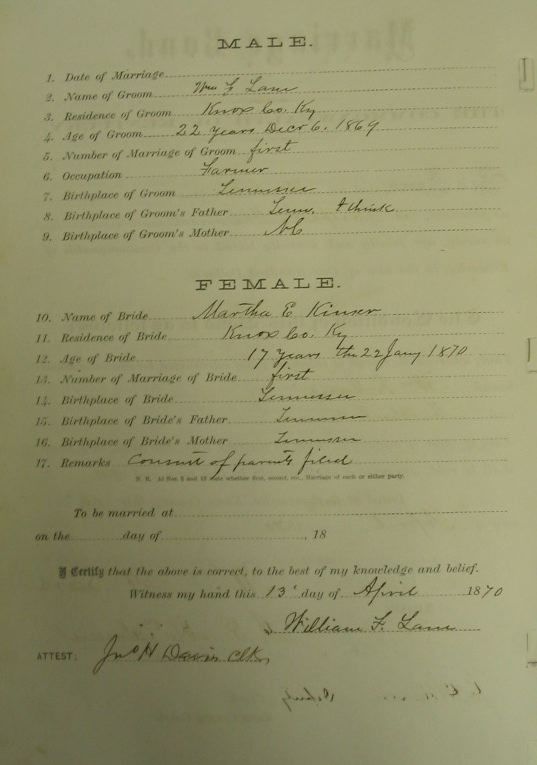 MALE.
1. Date of Marriage
2. Name of Groom Wm F Lane
3. Residence of Groom Knox Co. Ky
4. Age of Groom 22 years Decr 6. 1869
5. Number of Marriage of Groom first
6. Occupation Farmer
7. Birthplace of Groom Tennessee
8. Birthplace of Groom's Father Tenn. I think
9. Birthplace of Groom's Mother NC
FEMALE.
10. Name of Bride Martha E Kinser
11. Residence of Bride Knox Co. Ky
12. Age of Bride 17 years the 22 Jany 1870
13. Number of Marriage of Bride first
14. Birthplace of Bride Tennessee
15. Birthplace of Bride's Father Tennessee
16. Birthplace of Bride's Mother Tennessee
17. Remarks Consent of parents filed
N. B. At Nos. 5 and 13 state whether first, second, etc., Marriage of each or either party.
To be married at
on the day of , 18
I Certify that the above is correct, to the best of my knowledge and belief.
Witness my hand this 13' day of April 1870
William F. Lane
ATTEST: Jno H Davis Clk